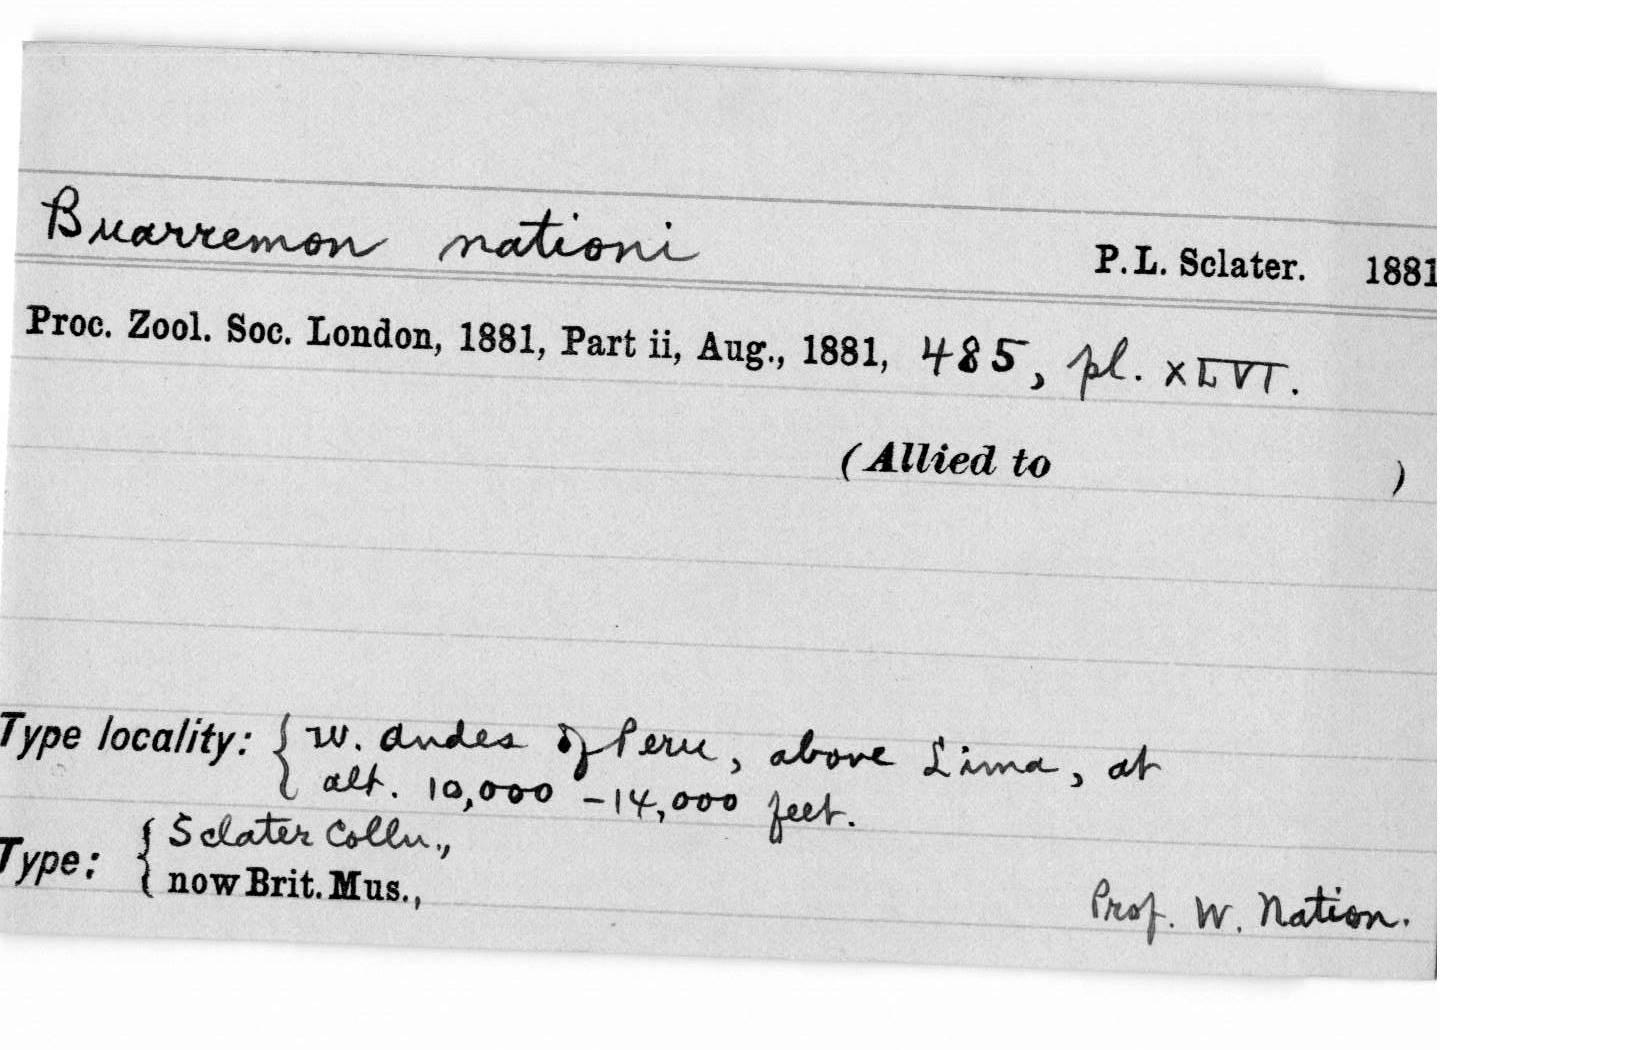 Buarremon nationi P.L. Sclater. 1881
Proc. Zool. Soc. London, 1881, Part ii, Aug., 1881, 485, pl. XLVI.
(Allied to )
Type locality: { W. Andes of Peru, above Lima, at
alt. 10,000 -14,000 feet.
Type: { Sclater Colln.,
now Brit. Mus.,
Prof. W. Nation.